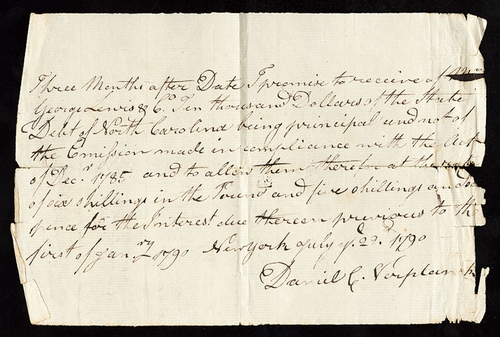 Three Months after Date I promise to receive of
George Lewis & Co. Ten thousand Dollars of the State
Debt of North Carolina being principal and not of
the Emission made in compliance with the Act
of Decr. 1785 and to allow them therefor at the
of six shillings in the Pound and five shillings and
pence for the Interest due thereon previous to the
first of Jany. 1790 New York July ye. 2d. 1790
Daniel C. Verplanck